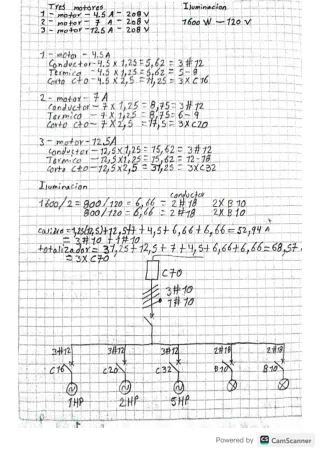 Tres motores
1 - motor - 4.5 A - 208 V
2 - motor - 7 A - 208 V
3 - motor - 12,5 A - 208 V
Iluminacion
1600 W - 120 V
1 - motor - 4.5A
Conductor - 4.5 x 1,25 = 5,62 = 3#12
Termico - 4.5 x 1,25 = 5,62 = 5-8
Corto cto - 4.5 x 2,5 = 11,25 = 3xC16
2 - motor - 7 A
Conductor - 7 x 1,25 = 8,75 = 3#12
Termico - 7 x 1,25 = 8,75 = 6-9
Corto cto - 7 x 2,5 = 17,5 = 3xC20
3 - motor - 12,5A
Conductor - 12,5 x 1,25 = 15,62 = 3#12
Termico - 12,5 x 1,25 = 15,62 = 12-18
Corto cto - 12,5 x 2,5 = 31,25 = 3xC32
Iluminacion
conductor
1600/2 = 800/120 = 6,66 = 2#18 2x B10
800/120 = 6,66 = 2#18 2x B10
+ 4,5 + 6,66 + 6,66 = 52,94 A
= 3#10 + 1#10
totalizador = 31,25 + 12,5 + 7 + 4,5 + 6,66 + 6,66 = 68,57 A
= 3x C70
C70
3#10
1#10
3#12 3#12 3#12 2#18 2#18
C16 C20 C32 B10 B10
1HP 2HP 5HP
Powered by CS CamScanner